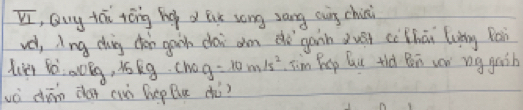 VI, Quy tắc tổng hợp 2 lực song song cùng chiều
vd, 1 ng dùng đòn gánh dài 2m để gánh 2 vật có khối lượng lần
lượt là: 20kg, 15kg. cho g = 10 m/s². tìm hợp lực t/d lên vai ng gánh
và điểm đặt của hợp lực đó?